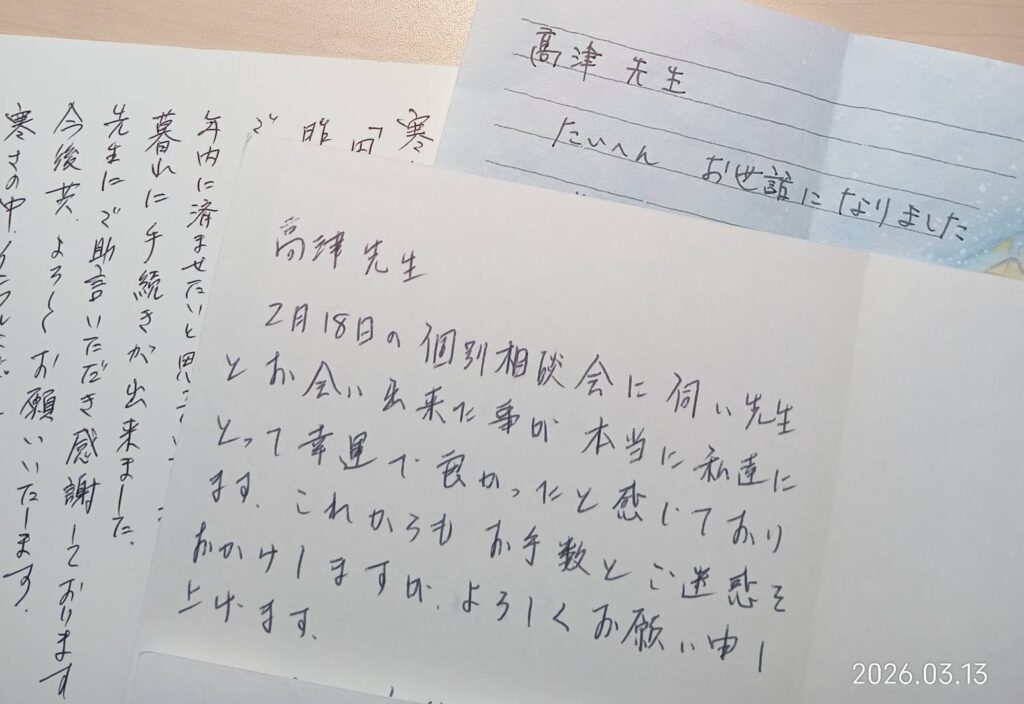 高津 先生
たいへん お世話になりました
寒
「
昨
で
年内に済ませたいと思
暮れに手続きが出来ました。
先生にご助言いただき感謝しております
今後共、よろしくお願いいたします。
寒さの中、インフル
高津 先生
2月18日の個別相談会に伺い先生
とお会い出来た事が本当に私達に
とって幸運で良かったと感じており
ます。これからもお手数とご迷惑を
おかけしますが、よろしくお願い申し
上げます。
2026.03.13